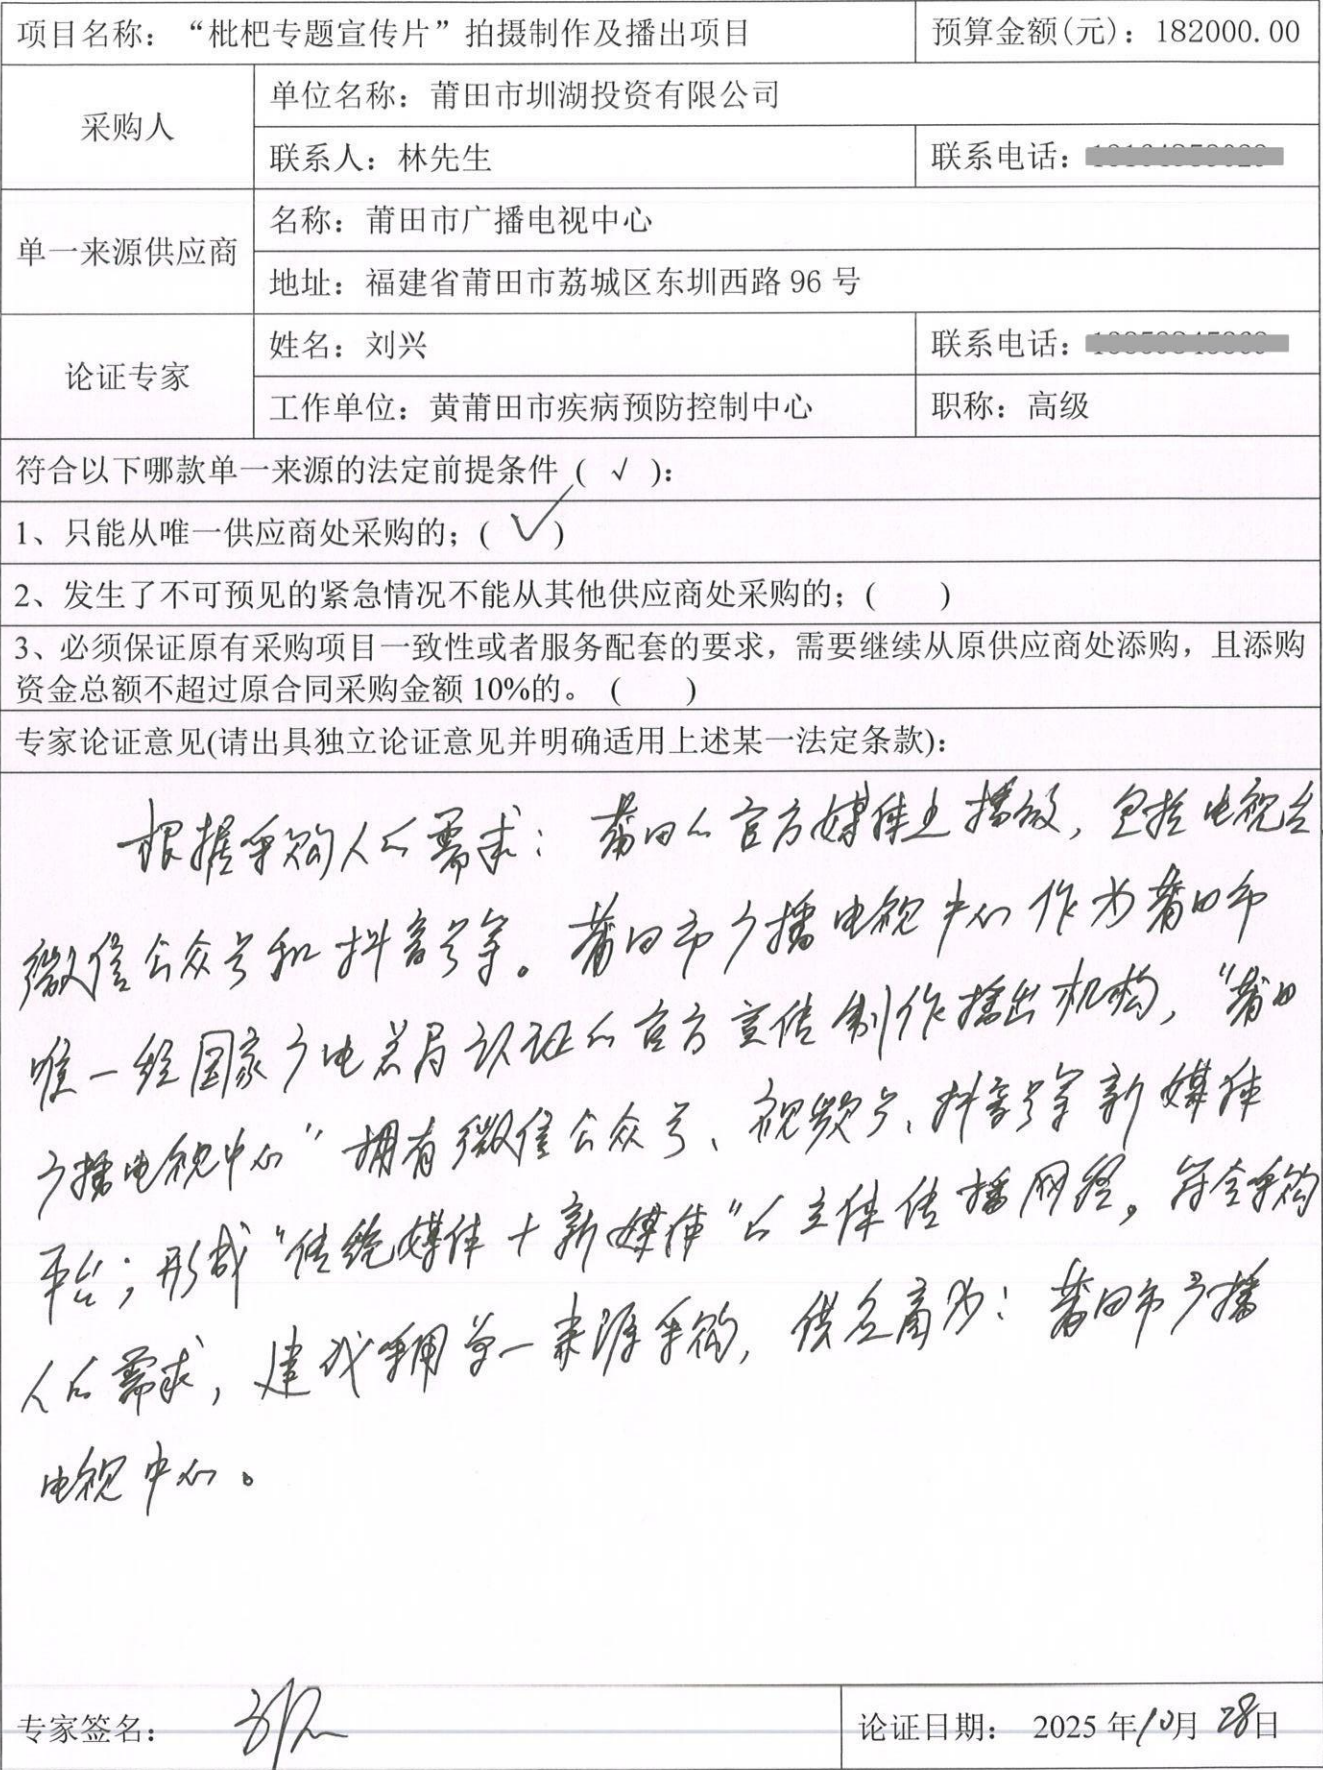 项目名称：“枇杷专题宣传片”拍摄制作及播出项目 预算金额(元)：182000.00
采购人
单位名称：莆田市圳湖投资有限公司
联系人：林先生 联系电话：
单一来源供应商
名称：莆田市广播电视中心
地址：福建省莆田市荔城区东圳西路 96 号
论证专家
姓名：刘兴 联系电话：
工作单位：黄莆田市疾病预防控制中心 职称：高级
符合以下哪款单一来源的法定前提条件 ( √ )：
1、只能从唯一供应商处采购的；( √ )
2、发生了不可预见的紧急情况不能从其他供应商处采购的；( )
3、必须保证原有采购项目一致性或者服务配套的要求，需要继续从原供应商处添购，且添购
资金总额不超过原合同采购金额 10%的。 ( )
专家论证意见(请出具独立论证意见并明确适用上述某一法定条款)：
根据采购人的需求：莆田的官方媒体上播放，包括电视台
微信公众号和抖音号等。莆田市广播电视中心作为莆田市
唯一经国家广电总局认证的官方宣传制作播出机构，“莆田
广播电视中心”拥有微信公众号、视频号、抖音号等新媒体
平台；形成“传统媒体+新媒体”的立体传播网络。符合采购
人的需求，建议采用单一来源采购，供应商为：莆田市广播
电视中心。
专家签名： 论证日期： 2025 年10月 28日